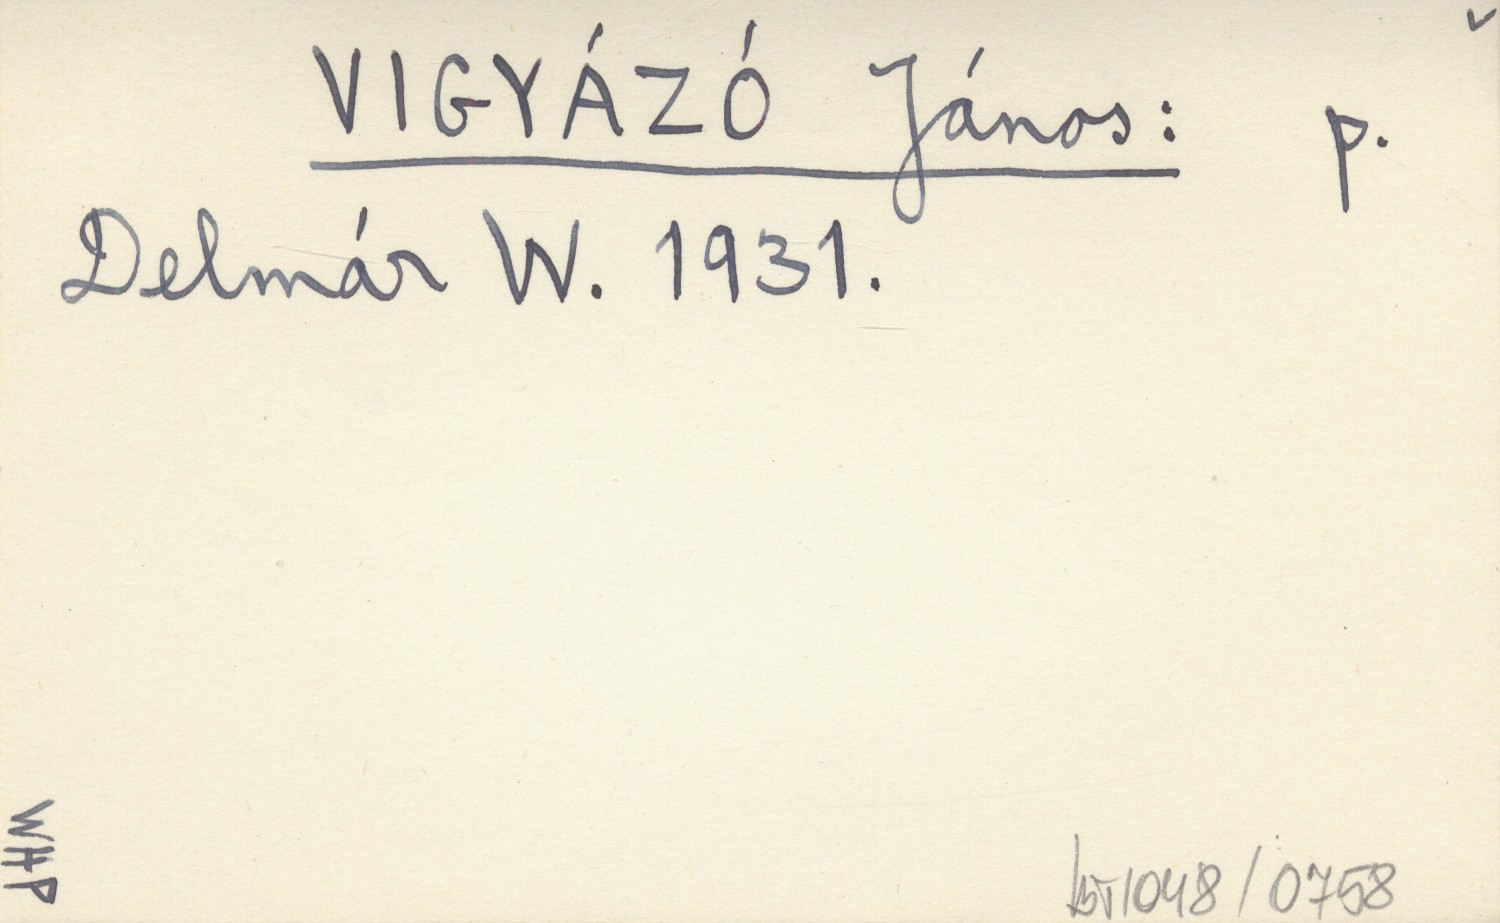 VIGYÁZÓ János: p.
Delmár W. 1931.
WHP
1048/0758